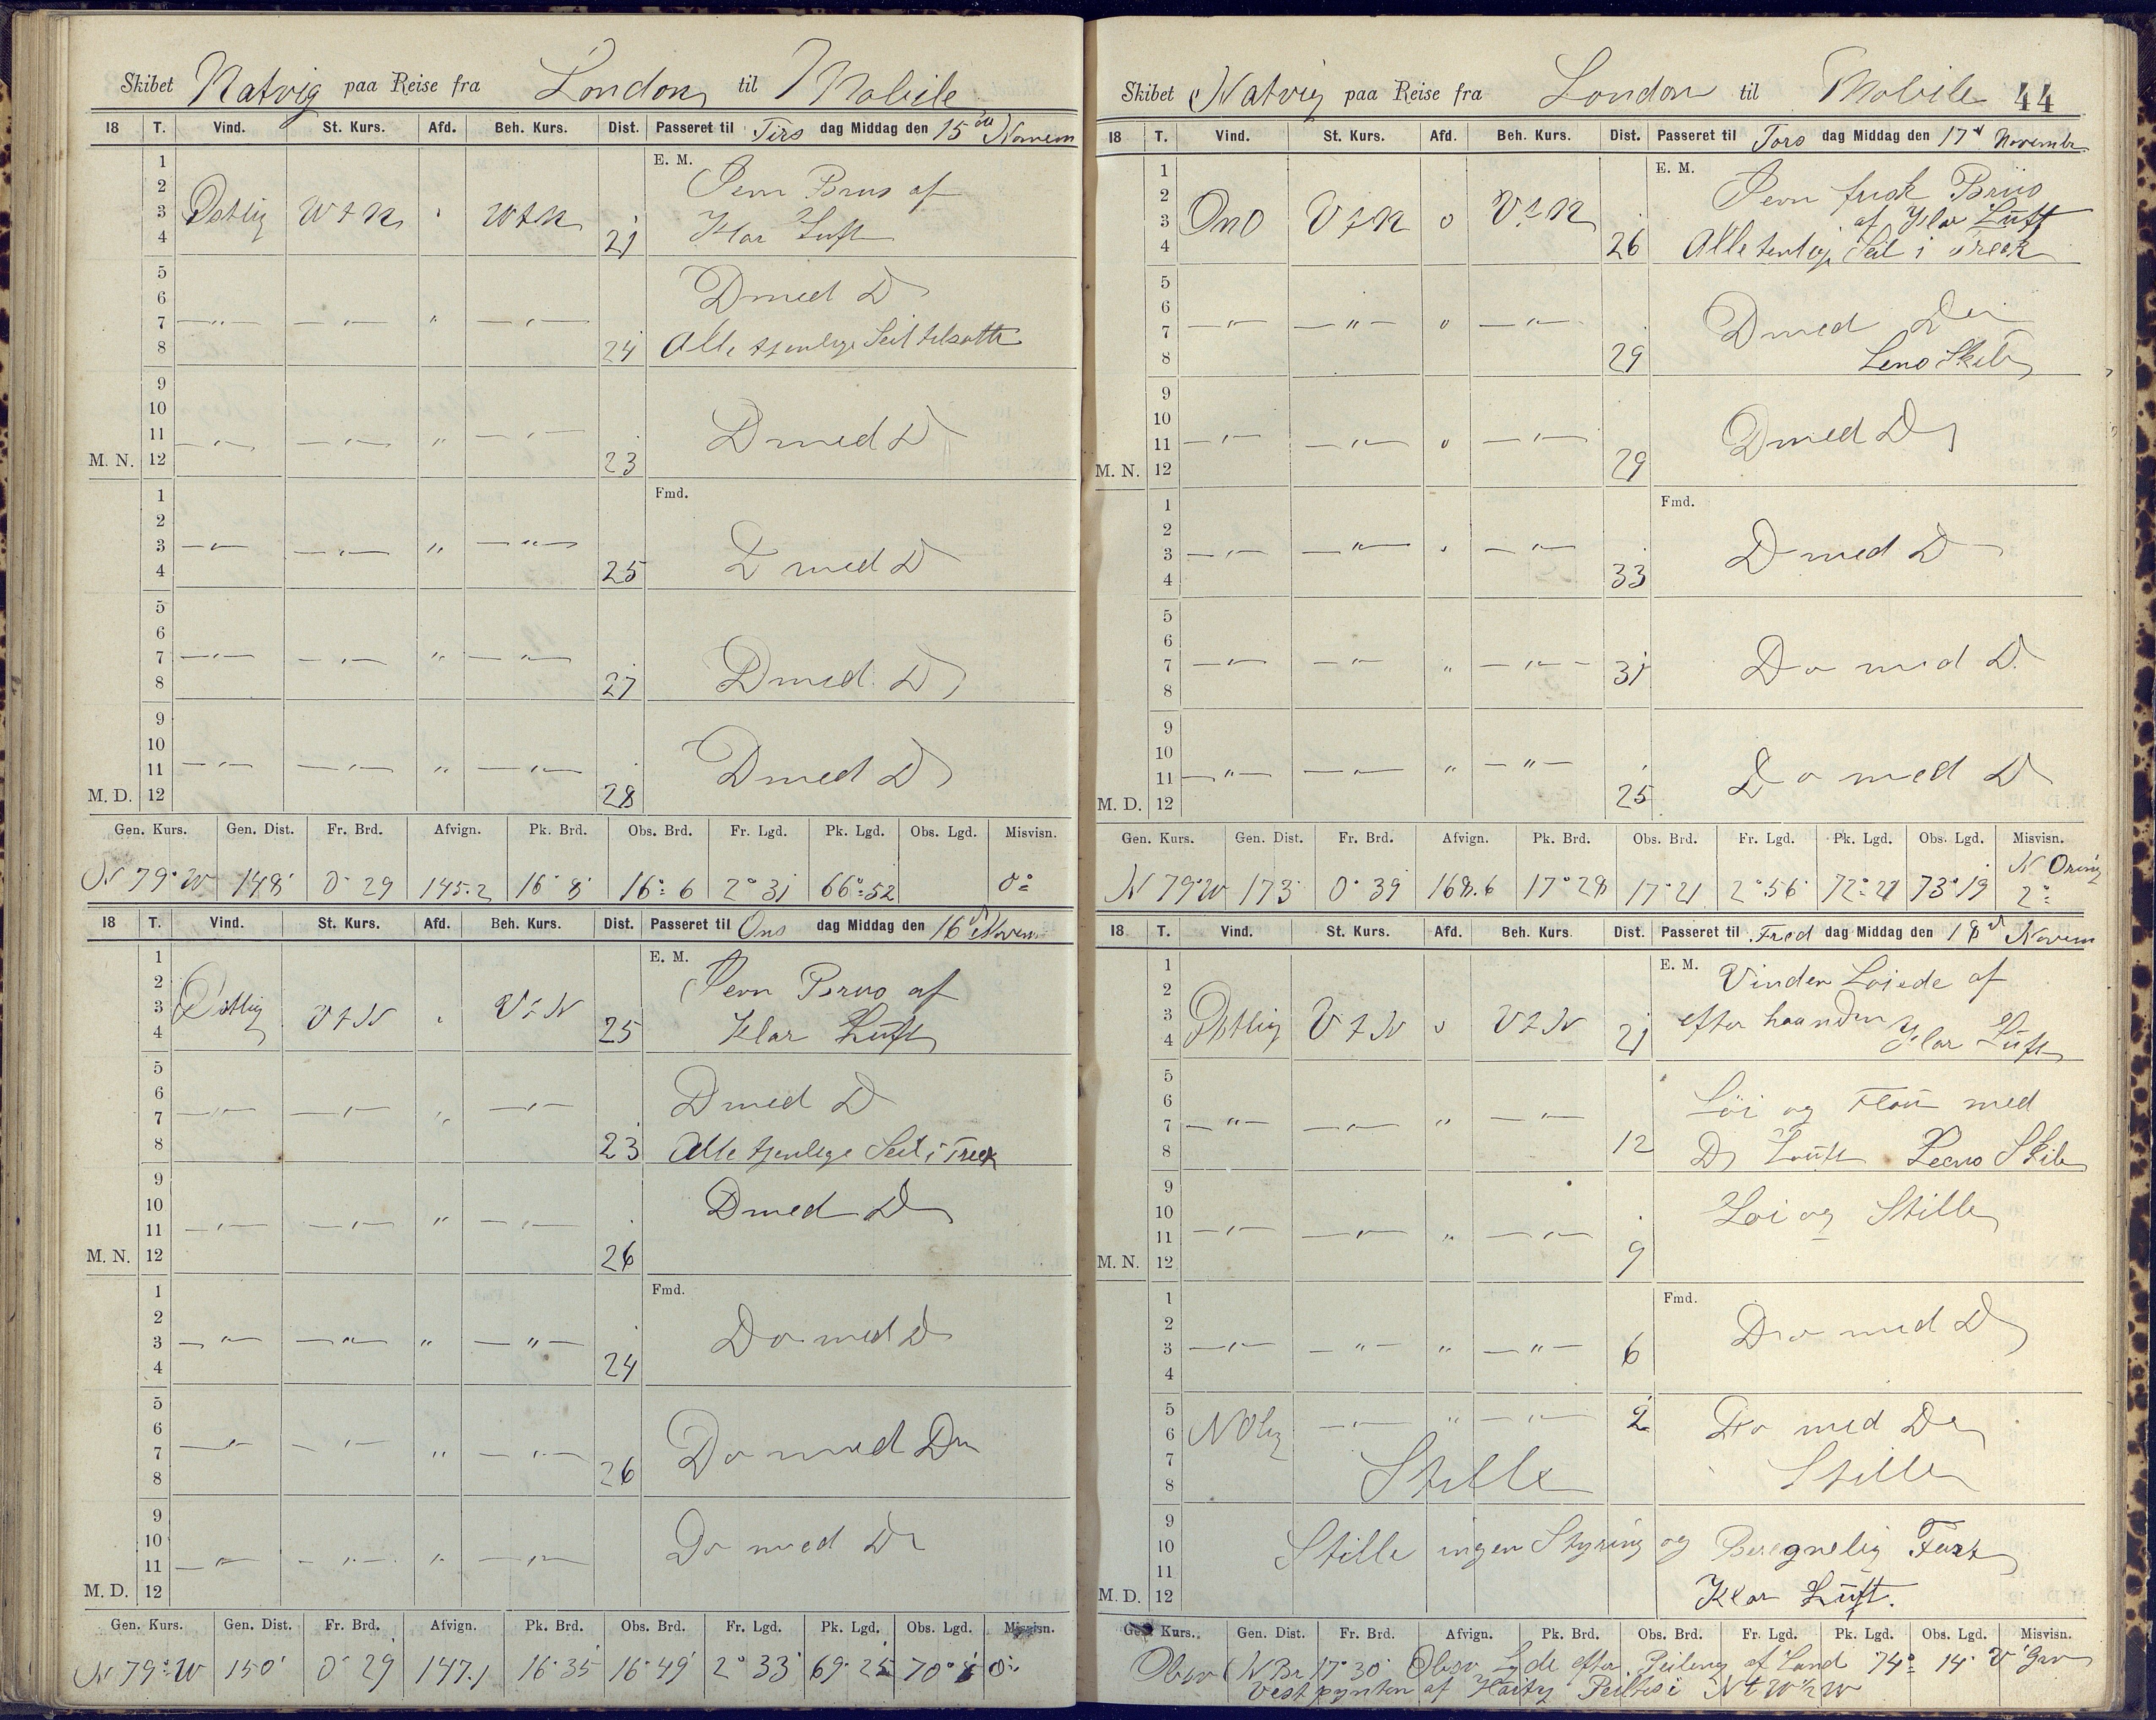 Skibet Natvig paa Reise fra London til Mobile
18 T. Vind. St. Kurs. Afd. Beh. Kurs. Dist. Passeret til Tirs dag Middag den 15de Novem
1 E. M.
2 Jevn Brus af
3 Østlig WtN " WtN Klar Luft
4 21
5
6 D med D
7 —"— —"— " —"—
8 24 Alle tjenlige Seil tilsatte
9
10
11 —"— —"— " —"— D med D
M. N. 12 23
1 Fmd.
2
3 —"— —"— " —"— D med D
4 25
5
6
7 —"— —"— " —"— D med D
8 27
9
10
11 —"— —"— " —"— D med D
M. D. 12 28
Gen. Kurs. Gen. Dist. Fr. Brd. Afvign. Pk. Brd. Obs. Brd. Fr. Lgd. Pk. Lgd. Obs. Lgd. Misvisn.
N 79° W 148' 0° 29 145.2 16° 8' 16° 6 2° 31 66° 52 0°
18 T. Vind. St. Kurs. Afd. Beh. Kurs. Dist. Passeret til Ons dag Middag den 16d Novem
1 E. M.
2 Jevn Brus af
3 Østlig VtN " VtN
4 25 Klar Luft
5
6 D med D
7 —"— —"— " —"—
8 23 Alle tjenlige Seil i Træk
9
10 D med D
11 —"— —"— " —"—
M. N. 12 26
1 Fmd.
2
3 —"— —"— " —"— Do med D
4 24
5
6
7 —"— —"— " —"— Do med Do
8 26
9
10 Do med D
11 —"— —"— " —"—
M. D. 12
Gen. Kurs. Gen. Dist. Fr. Brd. Afvign. Pk. Brd. Obs. Brd. Fr. Lgd. Pk. Lgd. Obs. Lgd. Misvisn.
N 79° W 150' 0° 29' 147.1 16° 35 16° 49' 2° 33' 69° 25 70° 0°
Skibet Natvig paa Reise fra London til Mobile 44
18 T. Vind. St. Kurs. Afd. Beh. Kurs. Dist. Passeret til Tors dag Middag den 17d Novembr.
1 E. M.
2 Jevn frisk Brüs
3 OnO VtN o VtN af Klar Lüft
4 26 Alle tenlige Seil i Træck
5
6
7 —"— —"— o —"— D med Do
8 29 Lens Skib
9
10
11 —"— —"— o —"— D med D
M. N. 12 29
1 Fmd.
2
3 —"— —"— " —"— D med D
4 33
5
6
7 —"— —"— " —"— 31 Do med D.
8
9
10
11 —"— —"— " —"— Do med D
M. D. 12 25
Gen. Kurs. Gen. Dist. Fr. Brd. Afvign. Pk. Brd. Obs. Brd. Fr. Lgd. Pk. Lgd. Obs. Lgd. Misvisn.
N 79° W 173 0° 39' 168.6 17° 28 17° 21 2° 56' 72° 21 73° 19 2°
18 T. Vind. St. Kurs. Afd. Beh. Kurs Dist. Passeret til Fred dag Middag den 18d Novem
1 E. M. Vinden Løiede af
2
3 Østlig VtN o VtN efter haanden
4 21 Klar Lüft
5
6 Löi og Flaü med
7 —"— —"— " —"—
8 12 D Lüft Lens Skib
9
10 Løi og Stille
11 —"— —"— " —"—
M. N. 12 9
1 Fmd.
2 Do med D
3 —"— —"— " —"— 6
4
5 —"— " —"— 2 Do med Do
6 NOlig
7
8 Stille Stille
9
10 Stille ingen Styring og Beregnelig Fart
11
M. D. 12 Klar Lüft.
Gen. Kurs. Gen. Dist. Fr. Brd. Afvign. Pk. Brd. Obs. Brd. Fr. Lgd. Pk. Lgd. Obs. Lgd. Misvisn.
Obsv NBr 17° 30' Obsv Lgde efter Peiling af Land 74° 14' V Grw
Vestpynten af Haity Peiltes i NtW½W